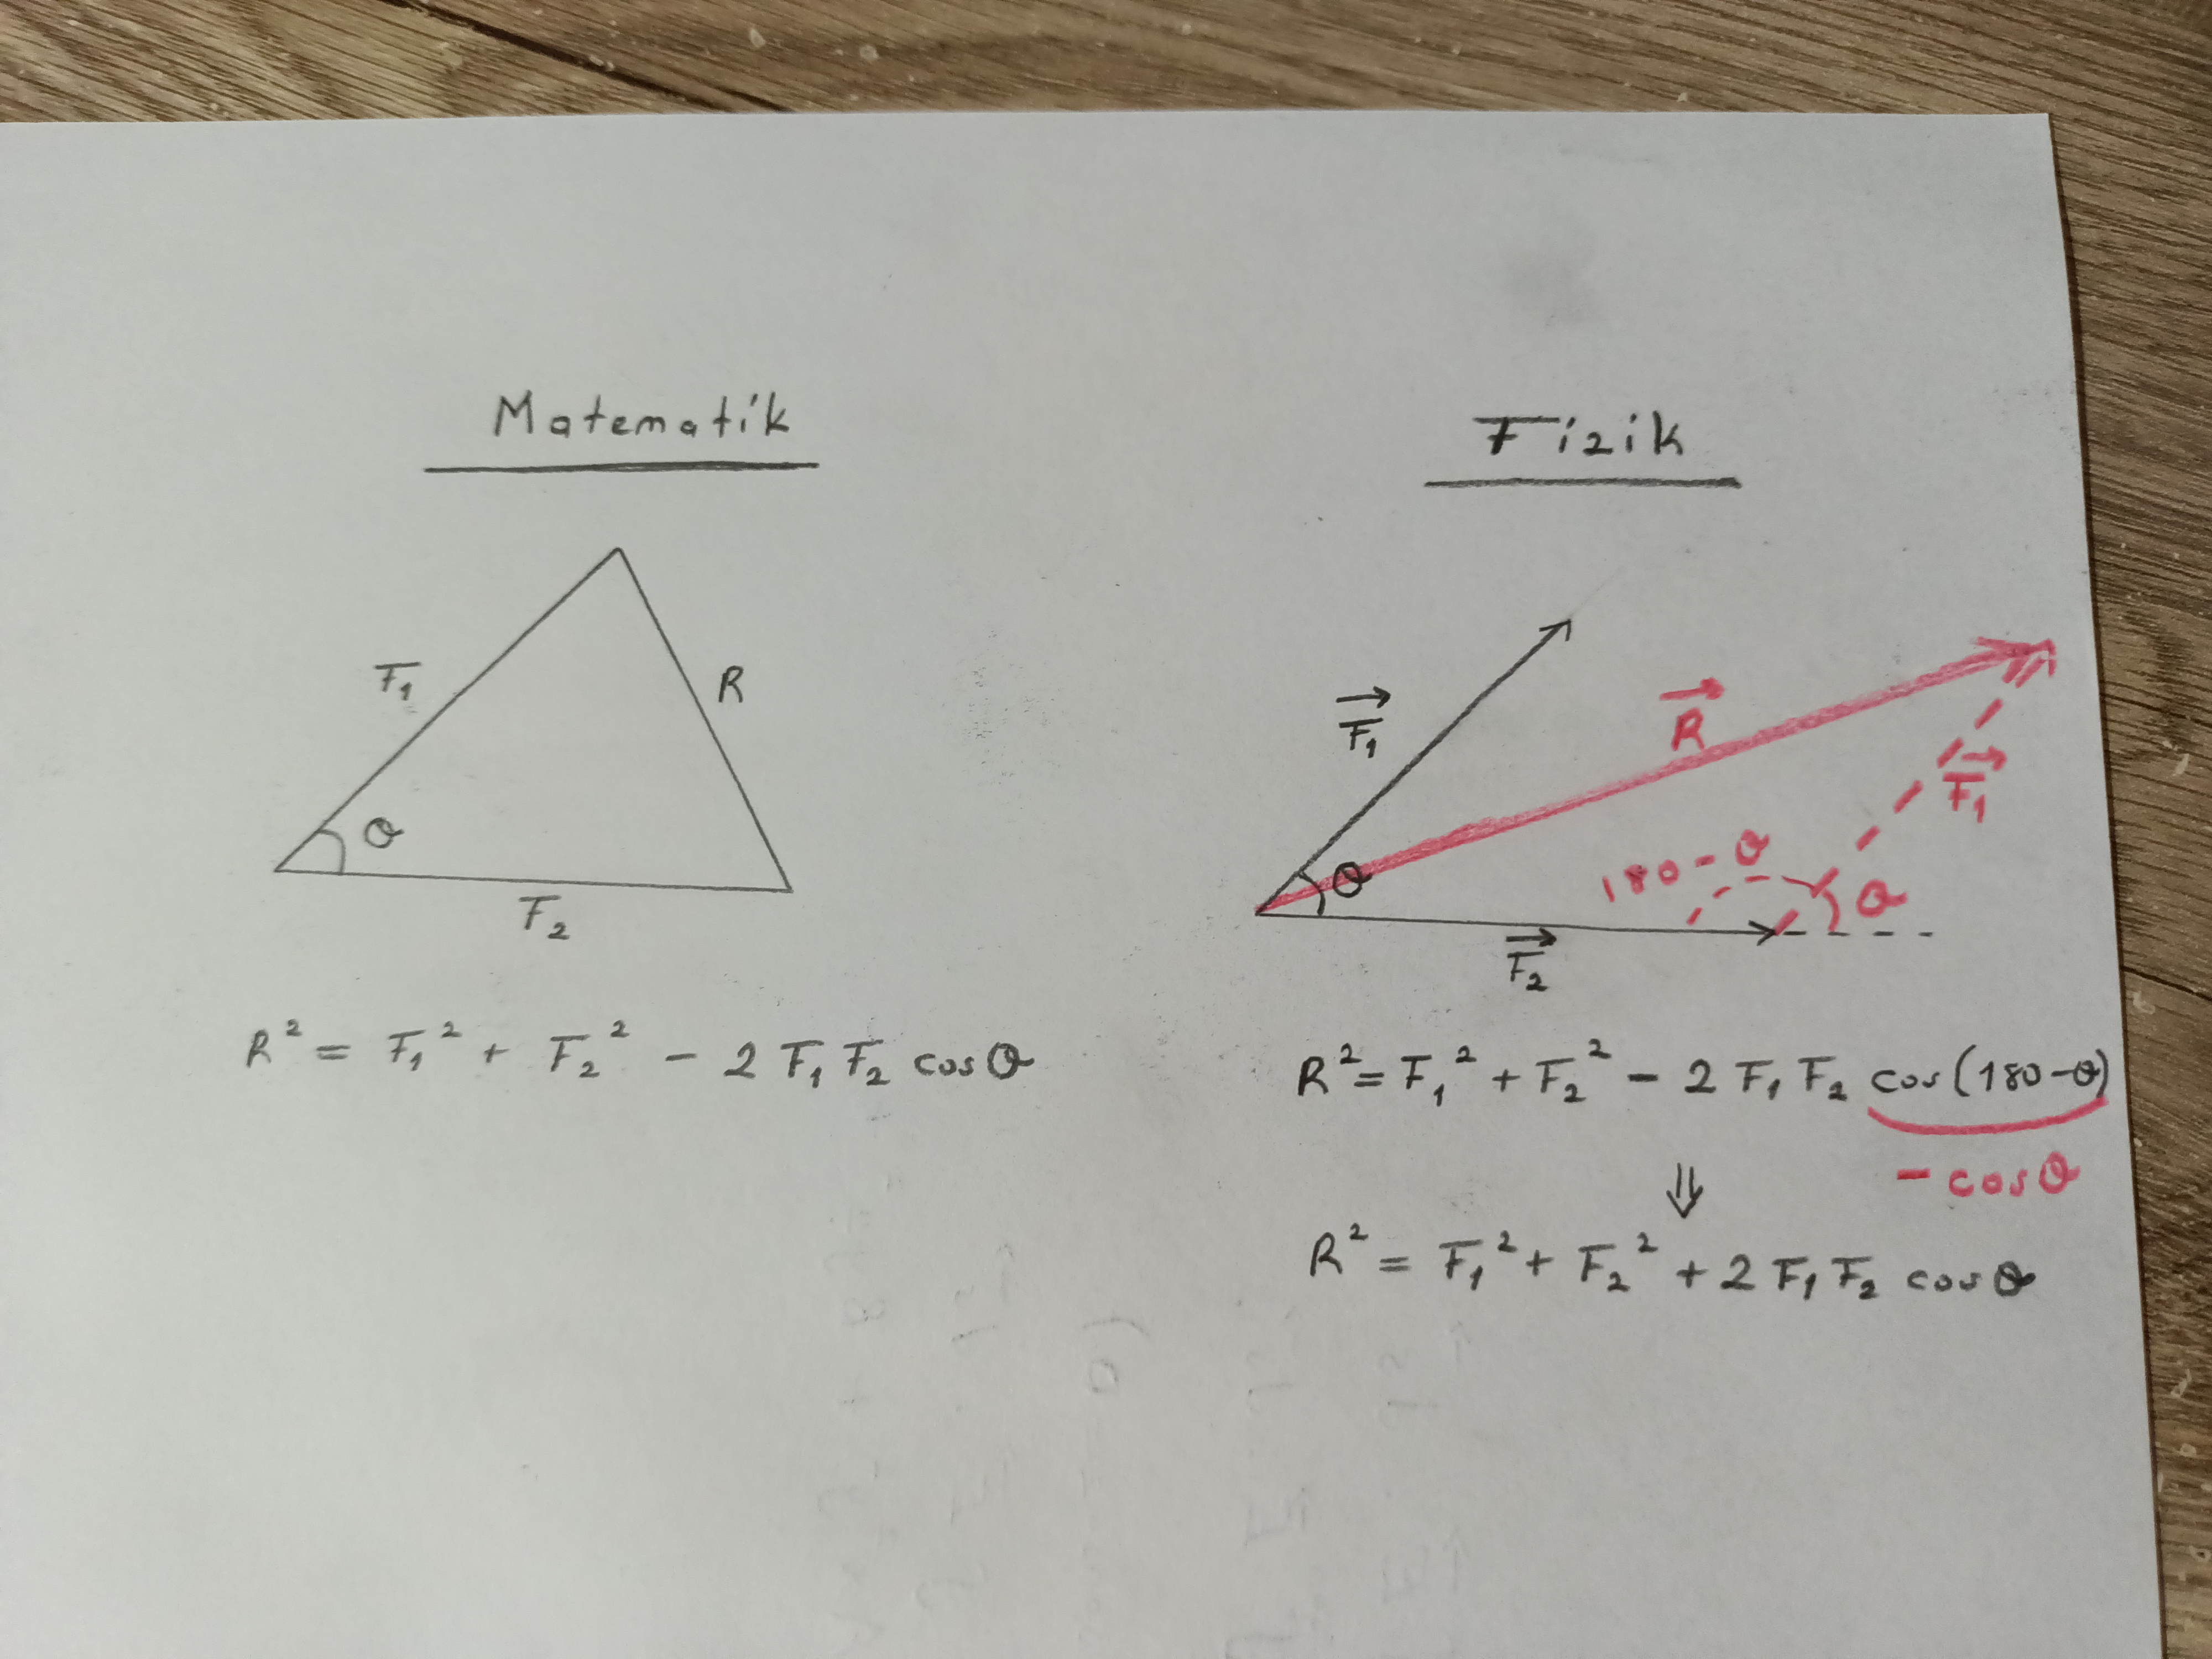 Matematik
F₁
R
θ
F₂
R² = F₁² + F₂² - 2 F₁ F₂ cosθ
Fizik
F₁
R
F₁
180 - θ
θ
θ
F₂
R² = F₁² + F₂² - 2 F₁ F₂ cos(180-θ)
⇓
- cosθ
R² = F₁² + F₂² + 2 F₁ F₂ cosθ